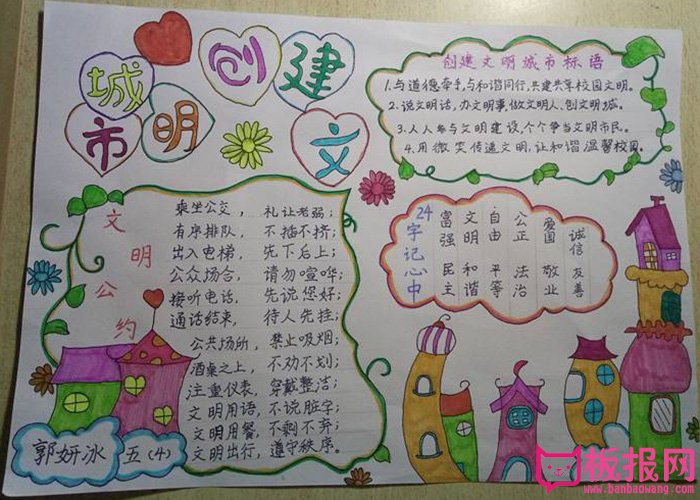 创建文明城市
创建文明城市标语
1.与道德牵手,与和谐同行,共建共享校园文明。
2.说文明话,办文明事,做文明人,创文明城。
3.人人参与文明建设,个个争当文明市民。
4.用微笑传递文明,让和谐温馨校园。
文明公约
乘坐公交,礼让老弱;
有序排队,不插不挤;
出入电梯,先下后上;
公众场合,请勿喧哗;
接听电话,先说您好;
通话结束,待人先挂;
公共场所,禁止吸烟;
酒桌之上,不劝不划;
注重仪表,穿戴整洁;
文明用语,不说脏字;
文明用餐,不剩不弃;
文明出行,遵守秩序。
24字记心中
富强 民主
文明 和谐
自由 平等
公正 法治
爱国 敬业
诚信 友善
郭妍冰 五(4)
板报网
www.banbaowang.com